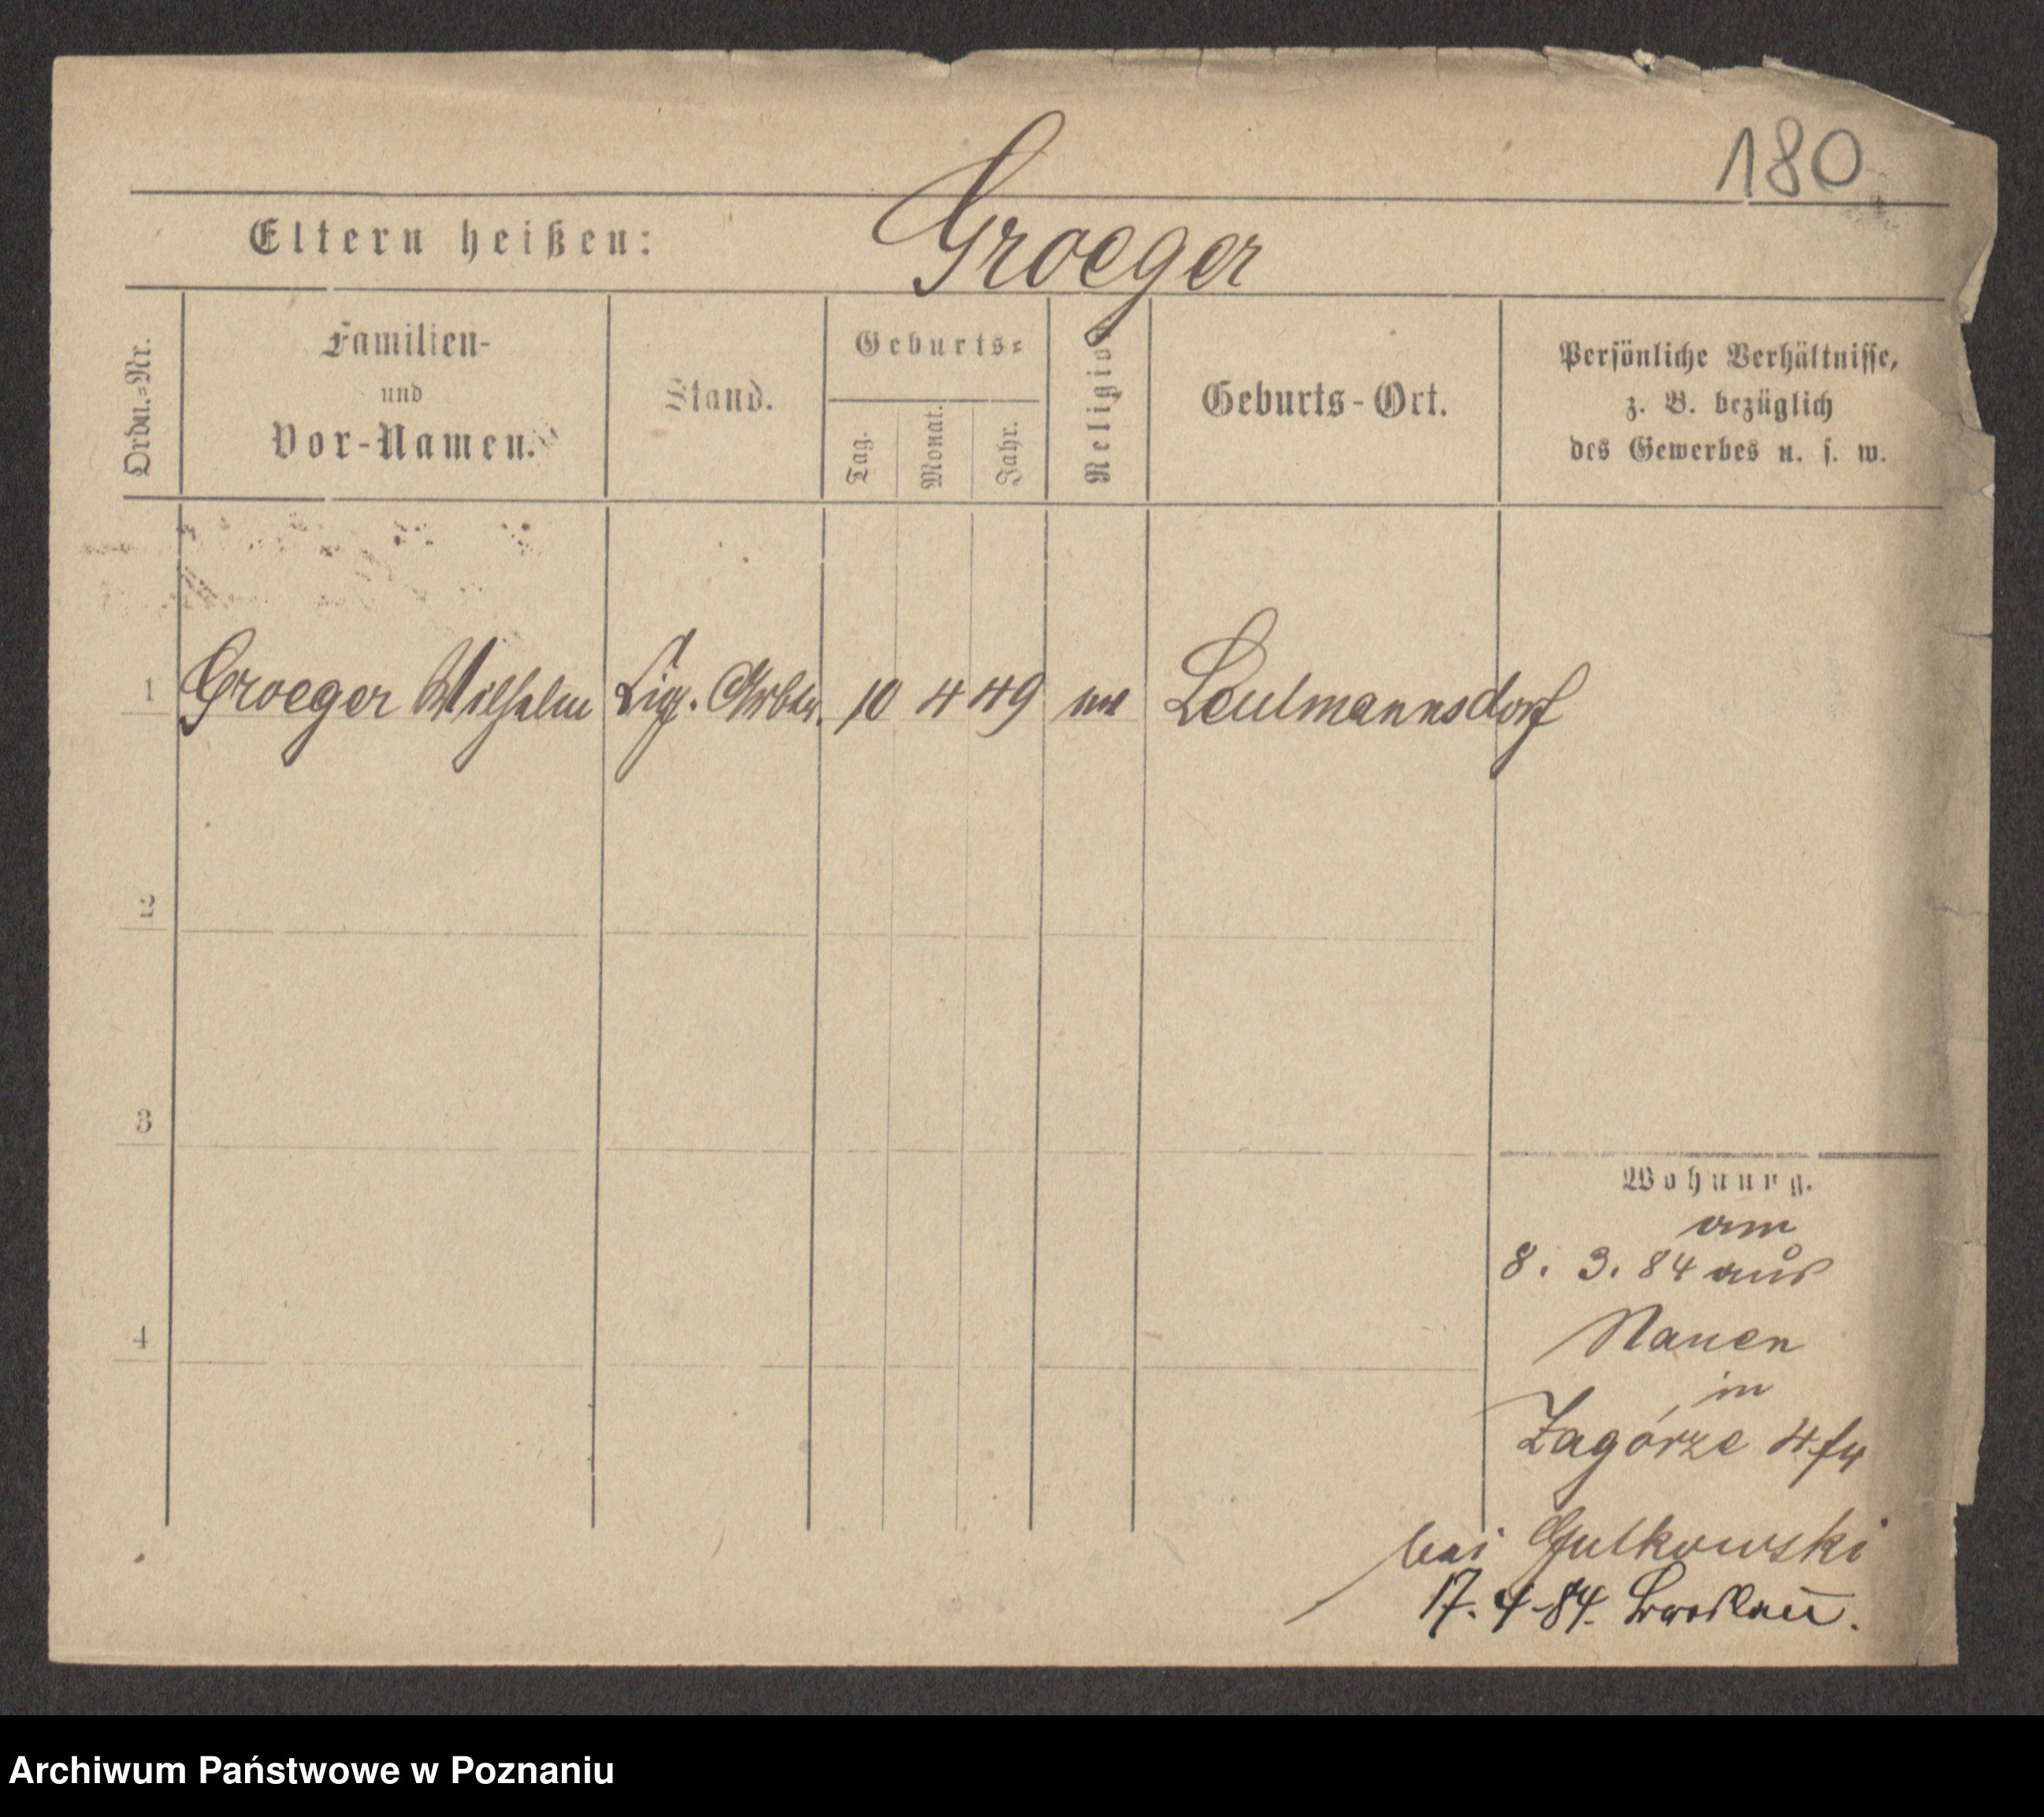 180
Eltern heißen: Groeger
Ordn.=Nr.
Familien-
und
Vor-Namen.
Stand.
Geburts=
Tag.
Monat.
Jahr.
Religion
Geburts-Ort.
Persönliche Verhältnisse,
z. B. bezüglich
des Gewerbes u. s. w.
1 Groeger Wilhelm Cig. Arbtr. 10 4 49 Leutmannsdorf
2
3
4
Wohnung.
am
8. 3. 84 aus
Nauen
in
Zagórze 4
bei Gutkowski
17. 4. 84. Breslau.
Archiwum Państwowe w Poznaniu